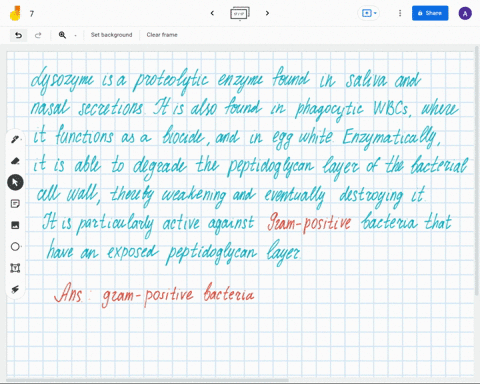 7
Share
A
Set background
Clear frame
Lysozyme is a proteolytic enzyme found in saliva and
nasal secretions It is also found in phagocytic WBCs, where
it functions as a biocide, and in egg white Enzymatically,
it is able to degrade the peptidoglycan layer of the bacterial
cell wall, thereby weakening and eventually destroying it
It is particularly active against Gram-positive bacteria that
have an exposed peptidoglycan layer
Ans : gram-positive bacteria